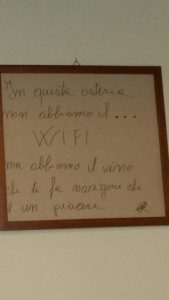 "In questa osteria
non abbiamo il...
WIFI
ma abbiamo il vino
che te fa navigare che
è un piacere